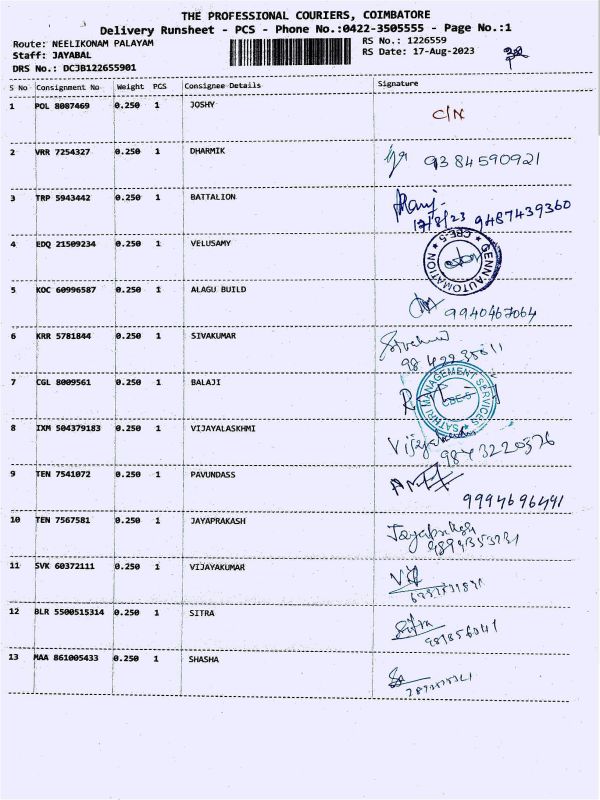 THE PROFESSIONAL COURIERS, COIMBATORE
Delivery Runsheet - PCS - Phone No.:0422-3505555 - Page No.:1
Route: NEELIKONAM PALAYAM
RS No.: 1226559
Staff: JAYABAL
RS Date: 17-Aug-2023
DRS No.: DCJB122655901
S No Consignment No Weight PCS Consignee Details Signature
1 POL 8087469 0.250 1 JOSHY C/N
2 VRR 7254327 0.250 1 DHARMIK 9384590921
3 TRP 5943442 0.250 1 BATTALION
17/8/23 9487439360
4 EDQ 21509234 0.250 1 VELUSAMY GENN AUTOMATION CBE-5
5 KOC 60996587 0.250 1 ALAGU BUILD 9940467064
6 KRR 5781844 0.250 1 SIVAKUMAR
7 CGL 8009561 0.250 1 BALAJI SATHRI MANAGEMENT SERVICES CBE-5
8 IXM 504379183 0.250 1 VIJAYALASKHMI
9843220376
9 TEN 7541072 0.250 1 PAVUNDASS
9994696491
10 TEN 7567581 0.250 1 JAYAPRAKASH
11 SVK 60372111 0.250 1 VIJAYAKUMAR
12 BLR 5500515314 0.250 1 SITRA Sitra
13 MAA 861005433 0.250 1 SHASHA